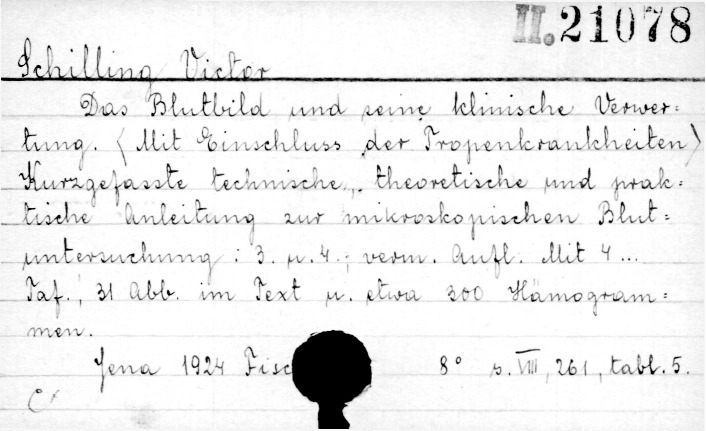 II. 21078
Schilling Victor
Das Blutbild und seine klinische Verwer=
tung. ⟨Mit Einschluss der Tropenkrankheiten⟩
Kurzgefasste technische, theoretische und prak=
tische Anleitung zur mikroskopischen Blut=
untersuchung: 3. u. 4., verm. Aufl. Mit 4 ...
Taf., 31 Abb. im Text u. etwa 300 Hämogram=
men.
Jena 1924 Fisc 8° s. VIII, 261, tabl. 5.